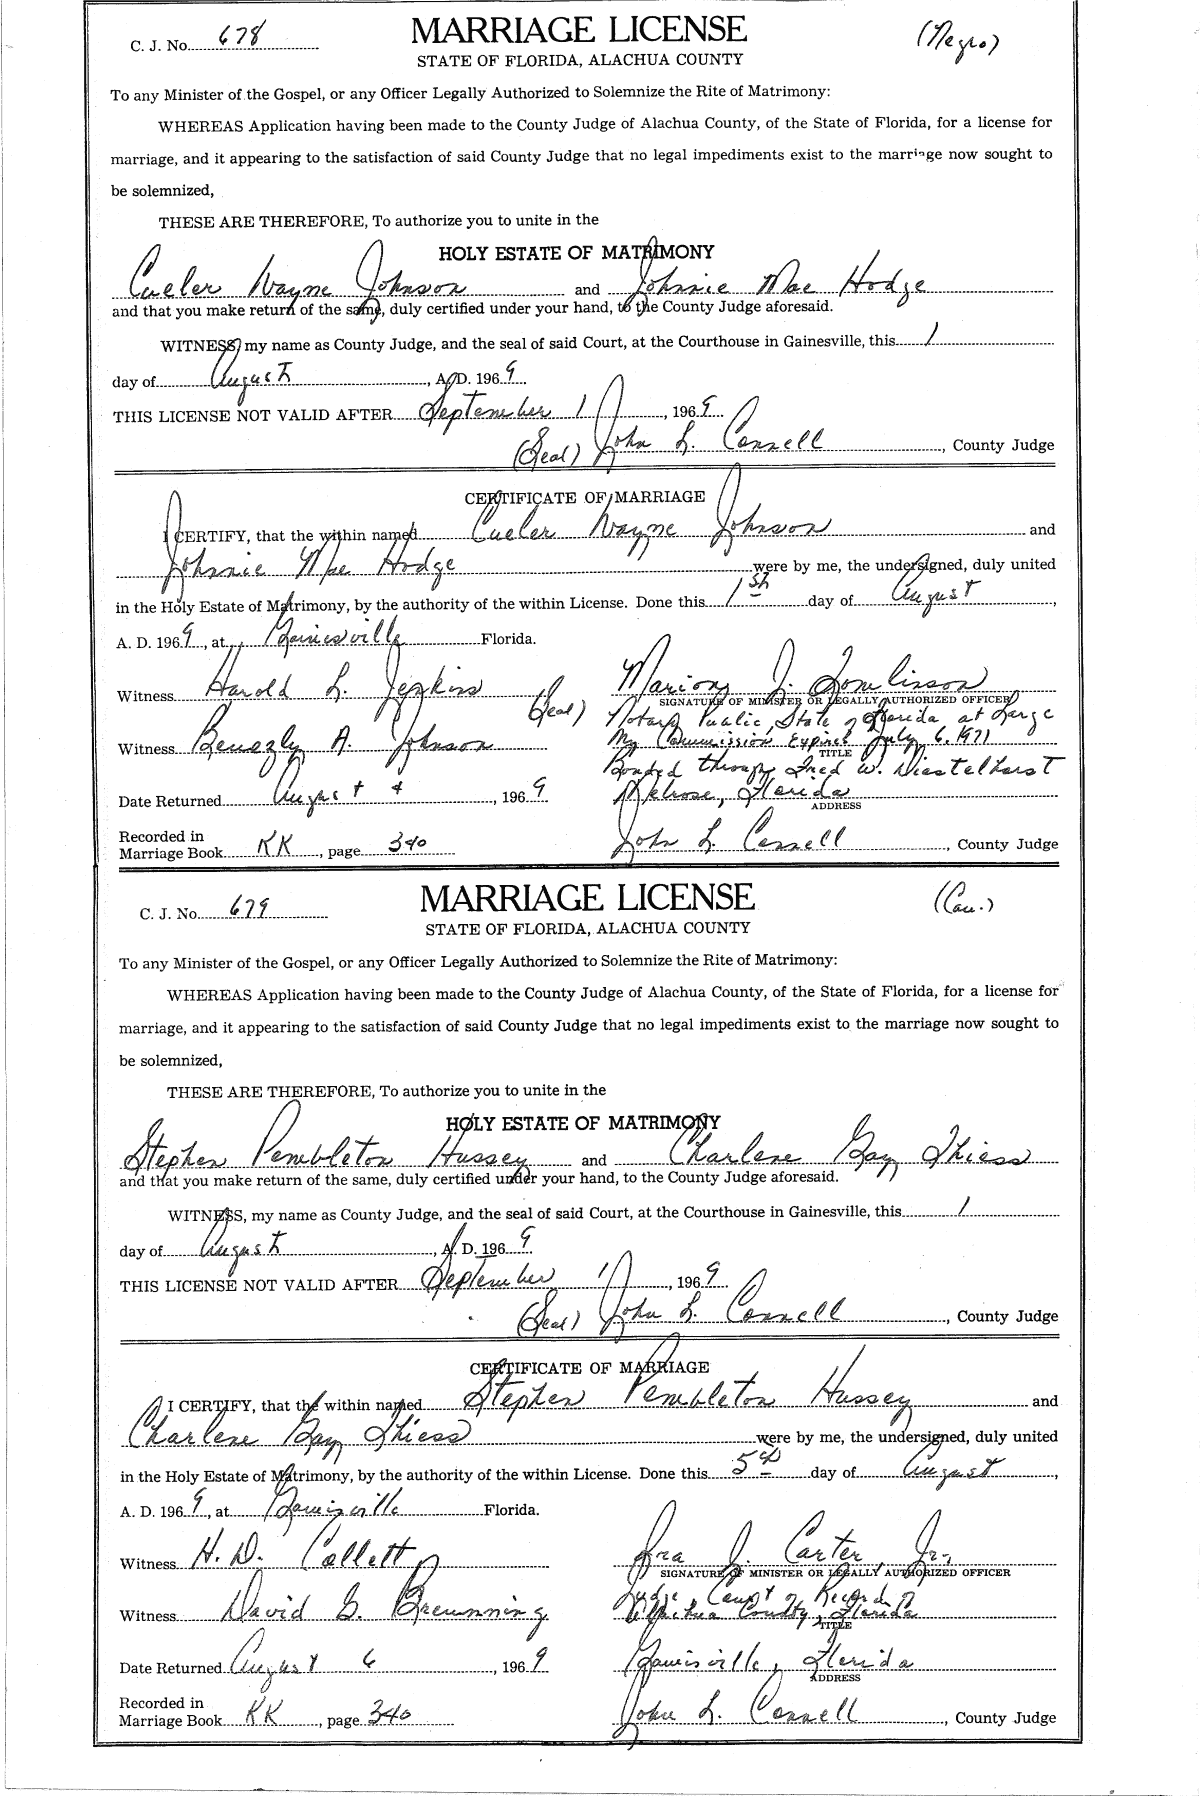 C. J. No. 678 MARRIAGE LICENSE (Negro)
STATE OF FLORIDA, ALACHUA COUNTY
To any Minister of the Gospel, or any Officer Legally Authorized to Solemnize the Rite of Matrimony:
WHEREAS Application having been made to the County Judge of Alachua County, of the State of Florida, for a license for
marriage, and it appearing to the satisfaction of said County Judge that no legal impediments exist to the marriage now sought to
be solemnized,
THESE ARE THEREFORE, To authorize you to unite in the
HOLY ESTATE OF MATRIMONY
Cueler Wayne Johnson and Johnnie Mae Hodge
and that you make return of the same, duly certified under your hand, to the County Judge aforesaid.
WITNESS, my name as County Judge, and the seal of said Court, at the Courthouse in Gainesville, this 1
day of August, A. D. 1969
THIS LICENSE NOT VALID AFTER September 1, 1969
(Seal) John L. Connell, County Judge
CERTIFICATE OF MARRIAGE
I CERTIFY, that the within named Cueler Wayne Johnson and
Johnnie Mae Hodge were by me, the undersigned, duly united
in the Holy Estate of Matrimony, by the authority of the within License. Done this 1st day of August,
A. D. 1969, at Gainesville Florida.
Witness Harold L. Jenkins (Seal) Marion J. Tomlinson
SIGNATURE OF MINISTER OR LEGALLY AUTHORIZED OFFICER
Notary Public, State of Florida at Large
Witness Beverly A. Johnson My Commission Expires July 6, 1971
TITLE
Bonded through Fred W. Diestelhorst
Date Returned August 4, 1969 Melrose, Florida
ADDRESS
Recorded in
Marriage Book KK, page 340 John L. Connell, County Judge
C. J. No. 679 MARRIAGE LICENSE (Cau.)
STATE OF FLORIDA, ALACHUA COUNTY
To any Minister of the Gospel, or any Officer Legally Authorized to Solemnize the Rite of Matrimony:
WHEREAS Application having been made to the County Judge of Alachua County, of the State of Florida, for a license for
marriage, and it appearing to the satisfaction of said County Judge that no legal impediments exist to the marriage now sought to
be solemnized,
THESE ARE THEREFORE, To authorize you to unite in the
HOLY ESTATE OF MATRIMONY
Stephen Pembleton Hussey and Charlene Gay Thiess
and that you make return of the same, duly certified under your hand, to the County Judge aforesaid.
WITNESS, my name as County Judge, and the seal of said Court, at the Courthouse in Gainesville, this 1
day of August, A. D. 1969
THIS LICENSE NOT VALID AFTER September 1, 1969
(Seal) John L. Connell, County Judge
CERTIFICATE OF MARRIAGE
I CERTIFY, that the within named Stephen Pembleton Hussey and
Charlene Gay Thiess were by me, the undersigned, duly united
in the Holy Estate of Matrimony, by the authority of the within License. Done this 5th day of August,
A. D. 1969, at Gainesville Florida.
Witness H. D. Collett Ira J. Carter, Jr.,
SIGNATURE OF MINISTER OR LEGALLY AUTHORIZED OFFICER
Judge Court of Record of
Witness David G. Brewnning Alachua County, Florida
TITLE
Date Returned August 6, 1969 Gainesville, Florida
ADDRESS
Recorded in
Marriage Book KK, page 340 John L. Connell, County Judge